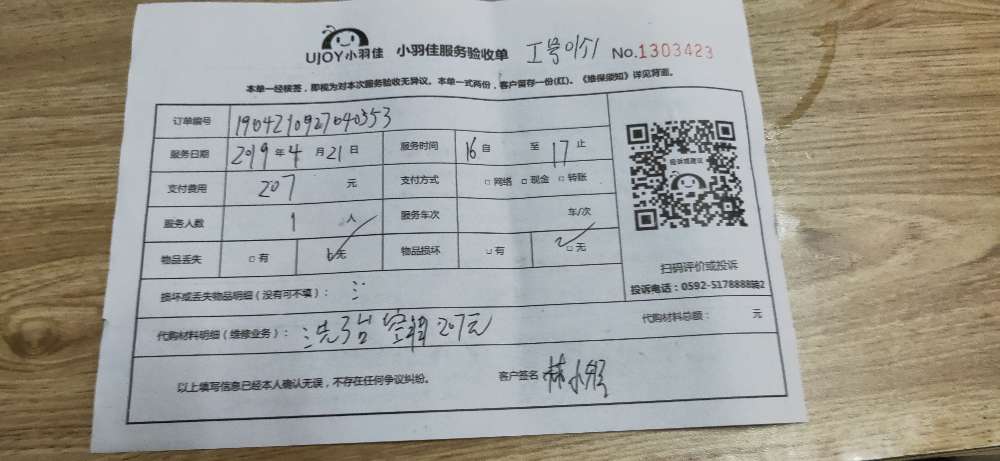 UJOY小羽佳 小羽佳服务验收单 工号 No.1303423
本单一经核签，即视为对本次服务验收无异议。本单一式两份，客户留存一份(红)。《维保须知》详见背面。
订单编号 1904210927040353
服务日期 2019年4月21日 服务时间 16自 至 17止
支付费用 207 元 支付方式 □网络 □现金 □转账
服务人数 1 人 服务车次 车/次
物品丢失 □有 无 物品损坏 □有 □无
投诉或建议
扫码评价或投诉
投诉电话：0592-5178888转2
损坏或丢失物品明细（没有可不填）：
代购材料明细（维修业务）： 洗 空调 207元 代购材料总额： 元
以上填写信息已经本人确认无误，不存在任何争议纠纷。 客户签名 林小